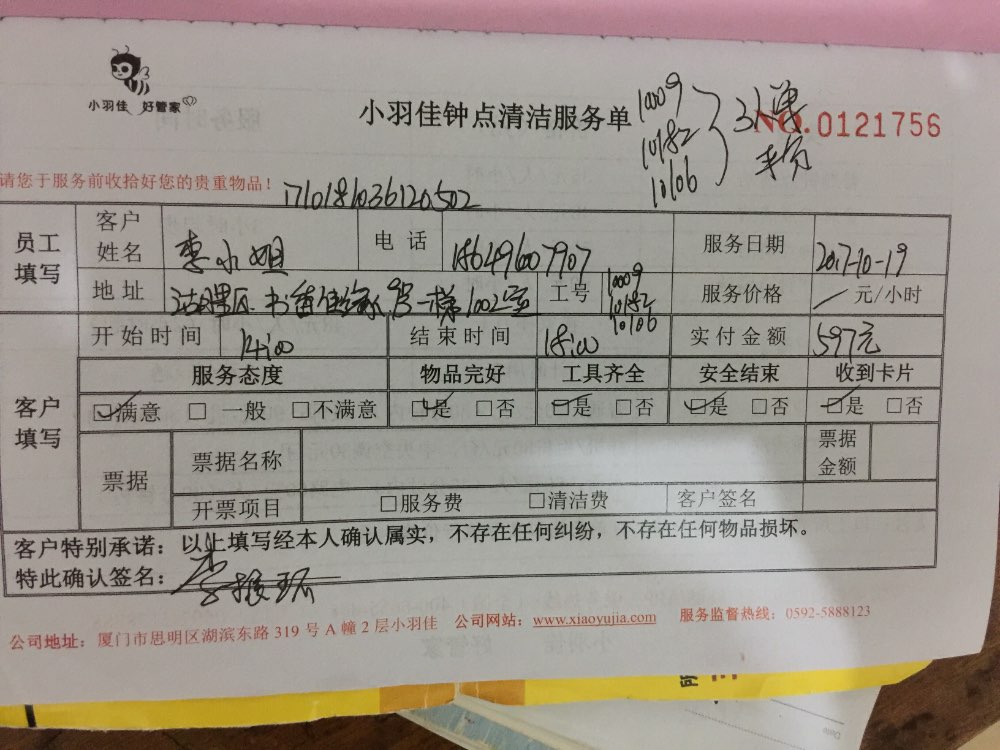 小羽佳 好管家
小羽佳钟点清洁服务单
10009
10182
10106
NO.0121756
请您于服务前收拾好您的贵重物品！
1710181036120502
员工填写 客户姓名 李小姐 电话 18649607907 服务日期 2017-10-19
地址 1002室 工号 10009 10182 10106 服务价格 元/小时
客户填写 开始时间 14:00 结束时间 18:00 实付金额 597元
服务态度 物品完好 工具齐全 安全结束 收到卡片
☑满意 □一般 □不满意 ☑是 □否 ☑是 □否 ☑是 □否 ☑是 □否
票据 票据名称 票据金额
开票项目 □服务费 □清洁费 客户签名
客户特别承诺：以上填写经本人确认属实，不存在任何纠纷，不存在任何物品损坏。
特此确认签名：李振环
公司地址：厦门市思明区湖滨东路 319 号 A 幢 2 层小羽佳 公司网站：www.xiaoyujia.com 服务监督热线：0592-5888123